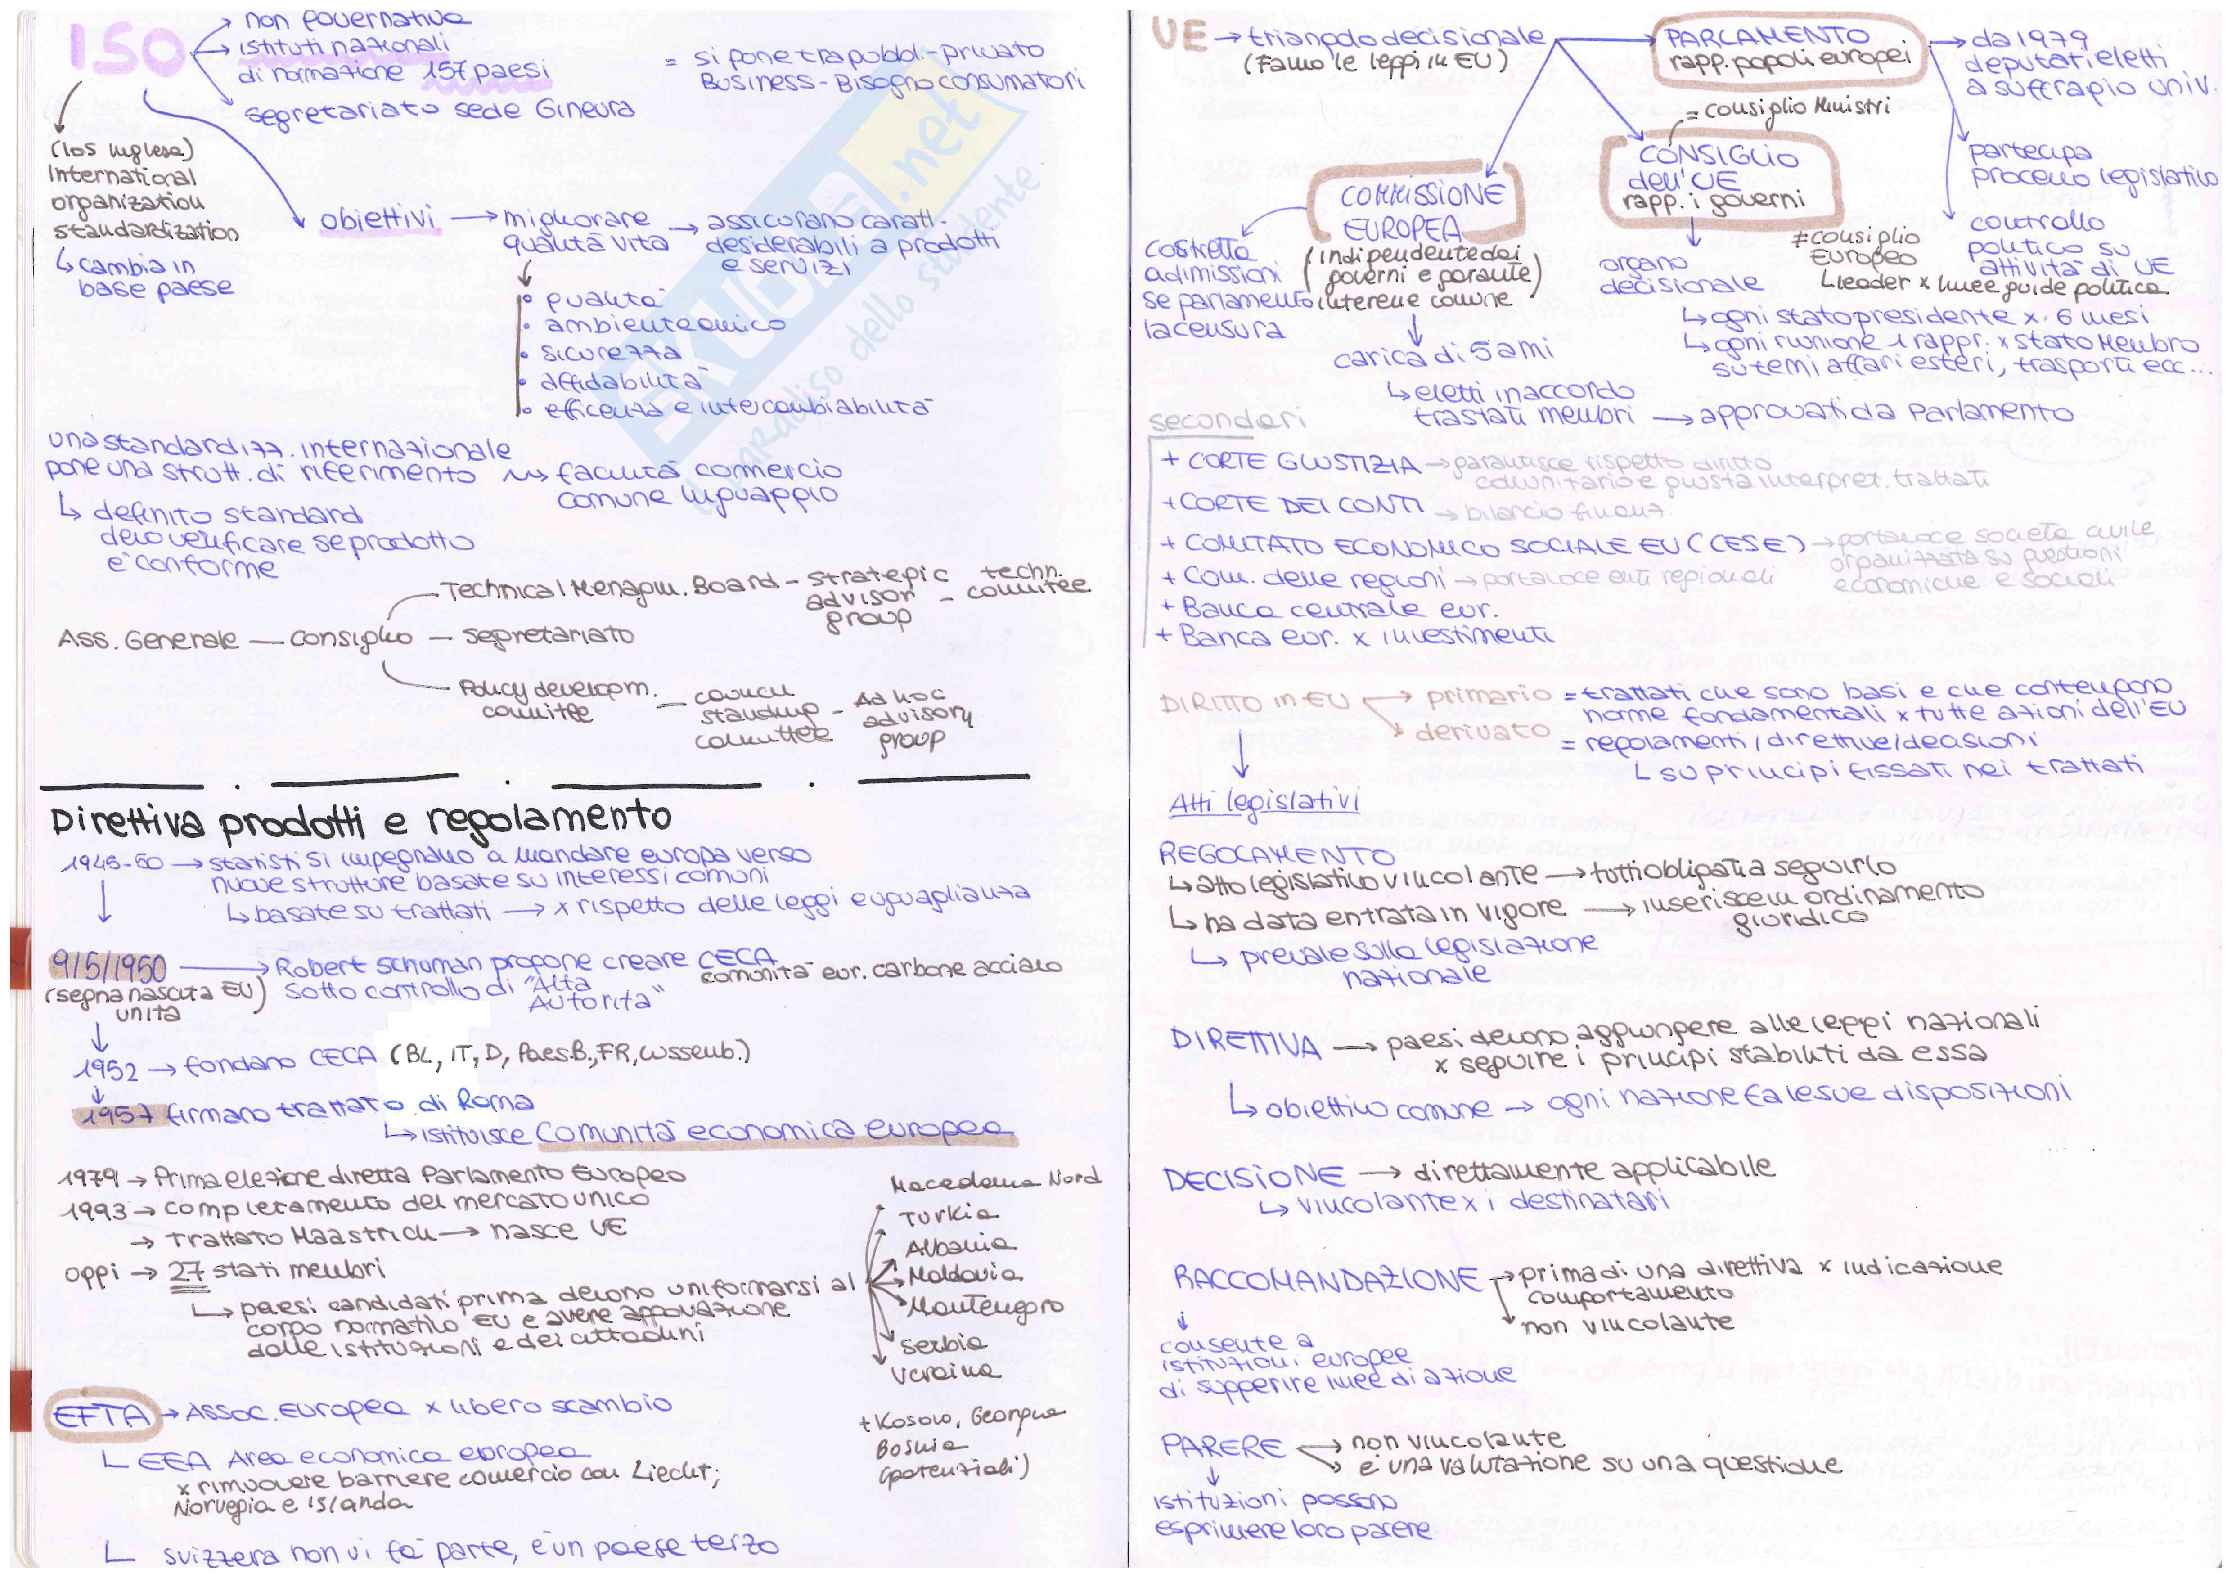 ISO
non governativa
istituti nazionali
di normazione 157 paesi
segretariato sede Ginevra
= si pone tra pubbl.-privato
Business - Bisogno consumatori
(IOS inglese)
International
organization
standardization
↳ cambia in
base paese
obiettivi → migliorare
qualità vita
→ assicurano caratt.
desiderabili a prodotti
e servizi
• qualità
• ambiente amico
• sicurezza
• affidabilità
• efficenza e intercambiabilità
una standardizz. internazionale
pone una strutt. di riferimento ↝ facilità comercio
comune linguaggio
↳ definito standard
devo verificare se prodotto
è conforme
Technical Menagm. Board - strategic
advisor
group
- techn.
committee
Ass. Generale — consiglio — segretariato
Policy developm.
committee
— council
standing
committee
- Ad hoc
advisory
group
Direttiva prodotti e regolamento
1945-50 → statisti si impegnano a mandare europa verso
nuove strutture basate su interessi comuni
↳ basate su trattati → x rispetto delle leggi e uguaglianza
9/5/1950 → Robert Schuman propone creare CECA
(segna nascita EU)
unita
sotto controllo di "Alta
Autorità"
comunità eur. carbone acciaio
1952 → fondano CECA (BL, IT, D, Paes.B., FR, Lussemb.)
1957 firmano trattato di Roma
↳ istituisce Comunità economica europea
1979 → Prima elezione diretta Parlamento Europeo
1993 → completamento del mercato unico
→ trattato Maastrich → nasce UE
oggi → 27 stati membri
↳ paesi candidati prima devono uniformarsi al
corpo normativo EU e avere approvazione
dalle istituzioni e dei cittadini
Macedonia Nord
Turkia
Albania
Moldavia
Montenegro
Serbia
Ucraina
+ Kosovo, Georgia
Bosnia
(potenziali)
EFTA → Assoc. europea x libero scambio
↳ EEA Area economica europea
x rimuovere barriere comercio con Liecht;
Norvegia e Islanda
↳ svizzera non vi fa parte, è un paese terzo
UE → triangolo decisionale
(Fanno le leggi in EU)
PARLAMENTO
rapp. popoli europei
→ da 1979
deputati eletti
a suffragio univ.
partecipa
processo legislativo
controllo
politico su
attività di UE
= consiglio Ministri
CONSIGLIO
dell'UE
rapp. i governi
COMMISSIONE
EUROPEA
(indipendente dai
governi e garante)
interesse comune
costretta
a dimissioni
se parlamento
la censura
organo
decisionale
≠ consiglio
Europeo
↳ leader x linee guide politica
↳ ogni stato presidente x 6 mesi
↳ ogni riunione 1 rappr. x stato Membro
su temi affari esteri, trasporti ecc...
carica di 5 anni
↳ eletti in accordo
tra stati membri → approvati da Parlamento
secondari
+ CORTE GIUSTIZIA → garantisce rispetto diritto
comunitario e giusta interpret. trattati
+ CORTE DEI CONTI → bilancio finanz.
+ COMITATO ECONOMICO SOCIALE EU (CESE) → portavoce società civile
organizzata su questioni
economiche e sociali
+ Com. delle regioni → portavoce enti regionali
+ Banca centrale eur.
+ Banca eur. x investimenti
DIRITTO in EU → primario = trattati che sono basi e che contengono
norme fondamentali x tutte azioni dell'EU
derivato = regolamenti/direttive/decisioni
↳ su principi fissati nei trattati
Atti legislativi
REGOLAMENTO
↳ atto legislativo vincolante → tutti obbligati a seguirlo
↳ ha data entrata in vigore → inserisce in ordinamento
giuridico
↳ prevale sulla legislazione
nazionale
DIRETTIVA → paesi devono aggiungere alle leggi nazionali
x seguire i principi stabiliti da essa
↳ obiettivo comune → ogni nazione fa le sue disposizioni
DECISIONE → direttamente applicabile
↳ vincolante x i destinatari
RACCOMANDAZIONE → prima di una direttiva x indicazione
comportamento
non vincolante
consente a
istituzioni europee
di suggerire linee di azione
PARERE → non vincolante
→ è una valutazione su una questione
istituzioni possono
esprimere loro parere
SKUOLA.net
il paradiso dello studente